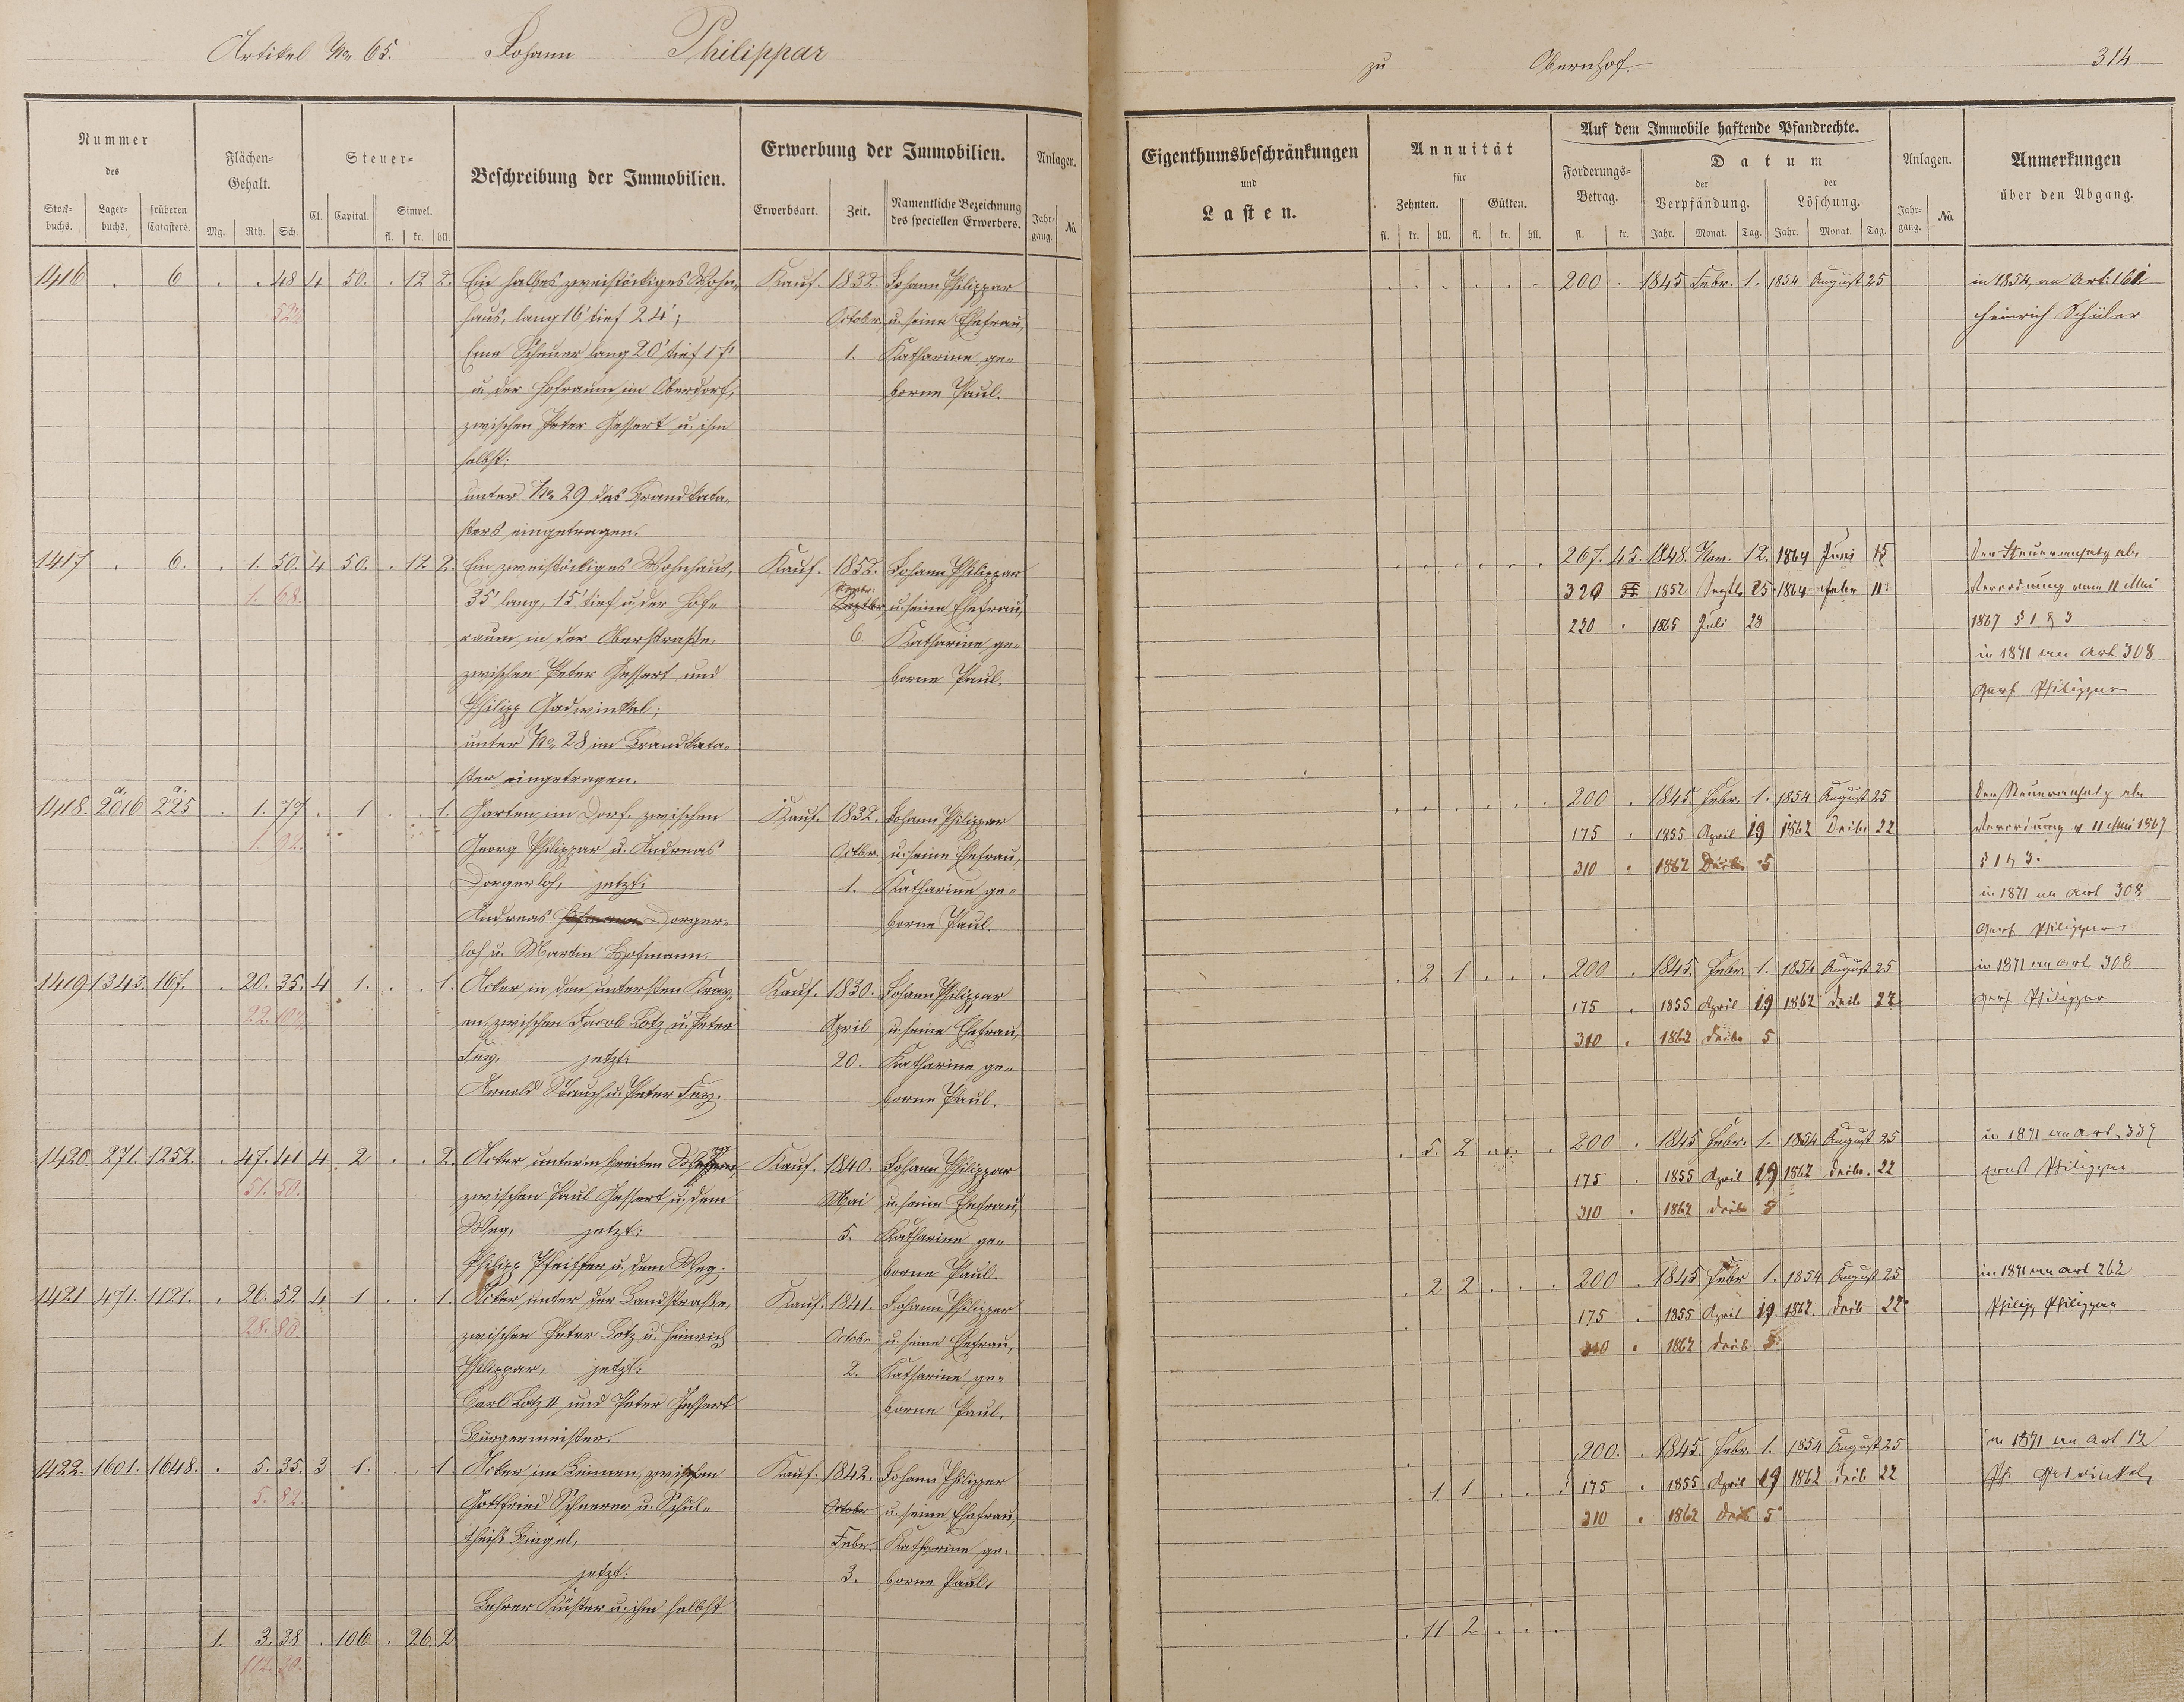 Artikel No 65. Johann Philippar
zu Obernhof. 314
Nummer des
Stock-buchs. Lager-buchs. früheren Catasters.
Flächen-Gehalt.
Mg. Rth. Sch.
Steuer-
Cl. Capital. Simpel. fl. kr. hll.
Beschreibung der Immobilien.
Erwerbung der Immobilien.
Erwerbsart. Zeit. Namentliche Bezeichnung des speciellen Erwerbers.
Anlagen. Jahr-gang. No.
Eigenthumsbeschränkungen und Lasten.
Annuität für
Zehnten. Gülten.
fl. kr. hll. fl. kr. hll.
Auf dem Immobile haftende Pfandrechte.
Forderungs-Betrag. fl. kr.
Datum der Verpfändung. der Löschung.
Jahr. Monat. Tag. Jahr. Monat. Tag.
Anlagen. Jahr-gang. No.
Anmerkungen über den Abgang.
1416 . 6 . . 48 4 50. . 12 2. Ein halbes zweistöckiges Wohn- Kauf. 1832. Johann Philippar 200 . 1845 Febr. 1. 1854 August 25 in 1854, an Art.
haus, lang 16' tief 24'; Octobr. u. seine Ehefrau, Heinrich Schüler
Eine Scheuer lang 20' tief 17' 1. Katharine ge-
u. der Hofraum im Oberdorf, borne Paul.
zwischen Peter Hessert u. ihm
selbst;
unter No 29 des Brandkata-
sters eingetragen.
1417 . 6. . 1. 50. 4 50. . 12 2. Ein zweistöckiges Wohnhaus, Kauf. 1852. Johann Philippar 267. 45. 1848. Nov. 12. 1864 Juni 15 Der Steueransatz ab
1. 68. 35' lang, 15' tief u. der Hof- Septbr. u. seine Ehefrau, 1852 Septb 25 1864 11 Verordnung vom 11 Mai
raum in der Oberstraße, 6. Katharine ge- 220 . 1865 Juli 28 1867 § 1 & 3
zwischen Peter Hessert und borne Paul. in 1871 an Art 308
Philipp Gadwinkel; Philippar
unter No 28 im Brandkata-
ster eingetragen.
1418. 2016 a. 225 a. . 1. 77 . 1 . . 1. Garten im Dorf, zwischen Kauf. 1832. Johann Philippar 200 . 1845. Febr. 1. 1854 August 25 Der Steueransatz ab
1. 92. Georg Philippar u. Andreas Octbr. u. seine Ehefrau, 175 . 1855 April 19 1862 22 Verordnung v 11 Mai 1867
Dorgerloh, jetzt: 1. Katharine ge- 310 . 1862 5 § 1 & 3.
Andreas Hofmann Dorger- borne Paul. in 1871 an Art 308
loh u. Martin Hofmann. Philippar
1419 1343. 167. . 20. 35. 4 1. . . 1. Acker in den untersten Kray- Kauf. 1830. Johann Philippar . 2 1 . . . 200 . 1845. Febr. 1. 1854 August 25 in 1871 an Art 308
en, zwischen Jacob Lotz u. Peter April u. seine Ehefrau, 175 . 1855 April 19 1862 22 Philippar
Fey, jetzt: 20. Katharine ge- 310 . 1862 5
Arnold Strauch u. Peter Fey. borne Paul.
1420. 271. 1252. . 47. 41 4 2 . . 2. Acker unterm breiten Kauf. 1840. Johann Philippar . 5. 2 . . . 200 . 1845 Febr. 1. 1854 August 25 in 1871 an Art. 337
51. 50. zwischen Paul Hessert u. dem Mai u. seine Ehefrau, 175 . 1855 April 19 1862 22 Ernst Philippar
Weg, jetzt: 5. Katharine ge- 310 . 1862 5
Philipp Pfeiffer u. dem Weg. borne Paul.
1421 471. 1121. . 26. 52 4 1 . . 1. Acker unter der Landstraße, Kauf. 1841. Johann Philippar . 2 2 . . . 200 . 1845 Febr 1. 1854 August 25 in 1871 an Art 262
28. 80 zwischen Peter Lotz u. Heinrich Octobr u. seine Ehefrau, 175 . 1855 April 19 1862. 22 Philipp Philippar
Philippar, jetzt: 2. Katharine ge- 310 . 1862 5
Carl Lotz II und Peter Hessert borne Paul.
Bürgermeister.
1422. 1601. 1648. . 5. 35. 3 1. . . 1 Acker im Leimen, zwischen Kauf. 1842. Johann Philippar 200. . 1845. Febr. 1. 1854 August 25 in 1871 an Art 12
5. 82. Gottfried Schnerer u. Schul- October u. seine Ehefrau, . 1 1 . . . 175 . 1855 April 19 1862 22 Gadwinkel
theiß Bingel, Febr. Katharine ge- 310 . 1862 5
jetzt: 3. borne Paul.
Lehrer Küster u. ihm selbst
1. 3. 38 . 106 . 26. 2 . 11 2 . . .
112. 30.